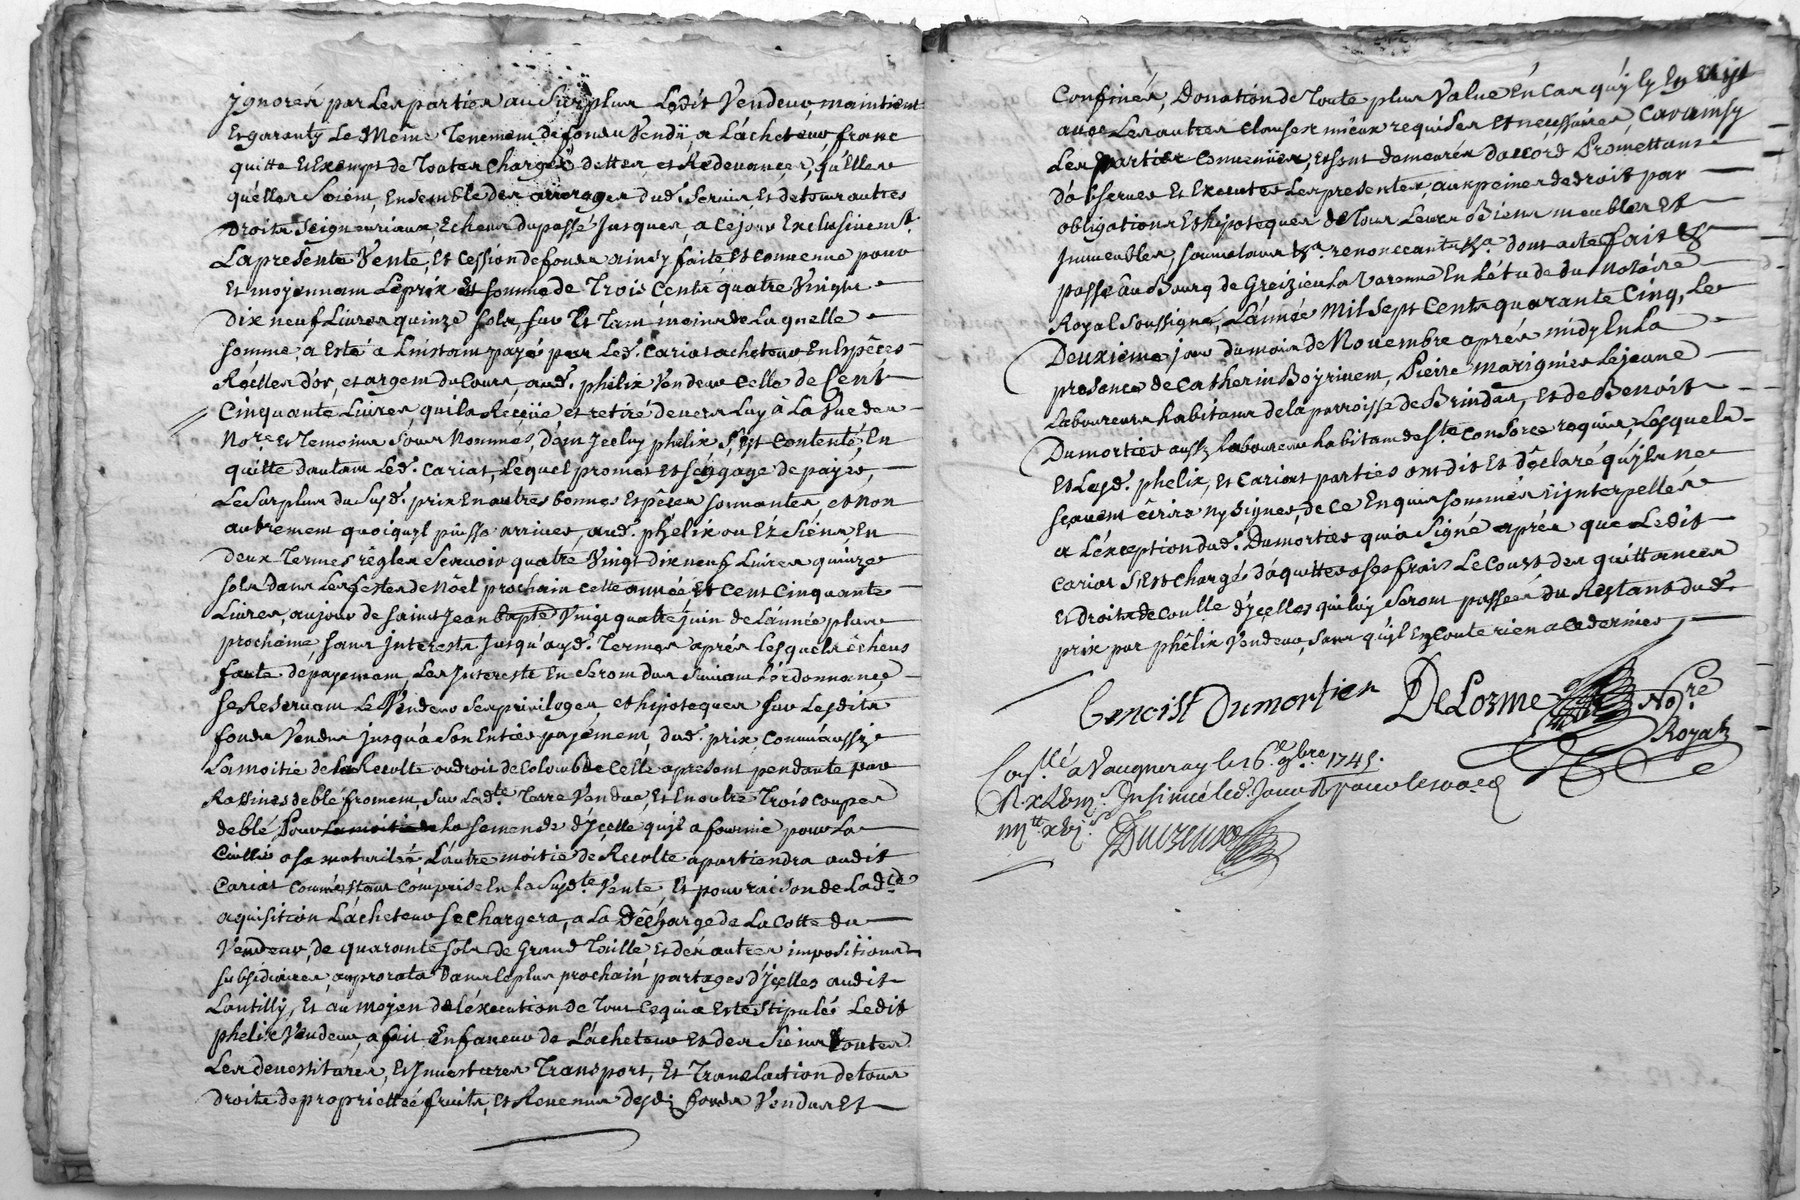 jgnorés par Les parties au Surplus Ledit Vendeur, maintient
Et garanty Le même Tenement de fonds Vendu, a L'acheteur franc
quitte Et Exempt de Toutes Charges dettes, et Redevances, qu'Elles
qu'elles Soient, Ensemble des arrerages dud. Servis, Et de tous autres
Droits Seigneuriaux, Echeus du passé Jusques, a Ce jour Exclusivemt.
La presente Vente, Et Cession de fonds ainsy faite, Et Convenue pour
Et moyennant Le prix Et somme de Trois Cents quatre Vingts
Dix neuf Livres quinze sols, sur Et Tant moins de Laquelle
somme, a Esté a L'instant payé par Led. Cariat acheteur En Espêces
Réelles d'or, et argent du Cours, aud. phélix Vendeur Celle de Cent
Cinquante Livres, qu'il a Réçeüe et retiré devers Luy à La Vue des
Nore. Et Temoins sous Nommés, dont Jceluy phélix, S'est Contenté, En
quitte d'autant Led. Cariat, Lequel promet et s'engage de payer,
Le Surplus du Susd. prix En autres bonnes Espêces sonnantes, et Non
autrement quoiqu'il puisse arriver, aud. phélix ou Ez Siens, En
deux Termes réglés Sçavoir quatre Vingt Dix neuf Livres quinze
sols dans Les festes de Nöel prochain Cette année Et Cent Cinquante
Livres, au jour de Saint Jean Bapte Vingt quatre juin de L'année plus
prochaine, sans jnterests Jusqu'aud. Termes après Lesquels êcheus
faute de payement, Les Jnterests En Seront dus Suivant L'ordonnance,
se Reservant Le Vendeur Ses privileges et hipoteques sur Lesdits
fonds Vendus jusqu'a Son Entier payement, dud. prix, Comme aussy
La moitié de la Recolte au droit de Colombe Celle apresent pendante par
Rassines de blé froment, Sur Ladte. Terre Vendue, Et En outre Trois Coupes
de blé Pour La moitié de La Semence d'jcelle qu'il a fournie pour La
Cuillir a sa maturité, L'autre moitié de Recolte apartiendra audit
Cariat Comme Etant Comprise En La Susdte. Vente Et pour raison de Ladte
aquisition L'acheteur Se Chargera, a La Dêcharge de La Cotte du
Vendeur, de quarante sols de Grand Taille, Et des autres impositions
subsidiaires, au prorata Dans Le plus prochain partages d'jcelles audit
Lantilly, Et au moyen de L'éxecution de Tout Ce qui a Esté Stipulé Ledit
phelix Vendeur, a fait En faveur de L'acheteur Et des Siens Toutes
Les devestitures, Et Jnvestitures Transport, Et Translation de tous
droits de proprietté fruits, Et Revenus desd. fonds Vendus Et
Confinés, Donation de Toute plus Value En Cas qu'il y En ayt
avec Les autres Clauses mieux requises Et necessaires, Car ainsy
Les Parties Convenües, Et sont demeurés d'accord Promettans
d'observer Et Executer Les presentes aux peines de droit par
obligations Et hipoteques de Tous Leurs Biens meubles Et
Jmmeubles, soumissions &a. renonceants &a. dont acte fait &
passé au Bourg de Greizieu La Varenne En L'étude du Notaire
Royal Soussigné, L'année Mil Sept Cents quarante Cinq, Le
Deuxième jour du mois de Novembre après midy En La
presence de Catherin Boyrivent, Pierre Marignier Lejeune
Laboureurs habitans de la parroisse de Brindas, Et de Benoist
Dumortier aussy Laboureur habitant de Ste. Consorce requis, Lesquels
Et Lesd. phelix, Et Cariat parties ont dit Et dêclaré qu'ils ne
sçavent êcrire ny Signer, de Ce Enquis sommés, Et jnterpellés
a L'exception dud. Dumortier qui a Signé après que Ledit
Cariat S'Est Chargé d'aquitter a Ses frais Le Coust des quittances
Et Droits de Coulle d'jcelles qui luy Seront passées du Restant dud.
prix par phêlix Vendeur, sans qu'il En Coute rien a Ce dernier
Benoist Dumortier DeLorme Nore.
Royal
Conllé. a Vaugneray le 16e. 9bre 1745.
R. x Insinué led. Jour &
Duvreux